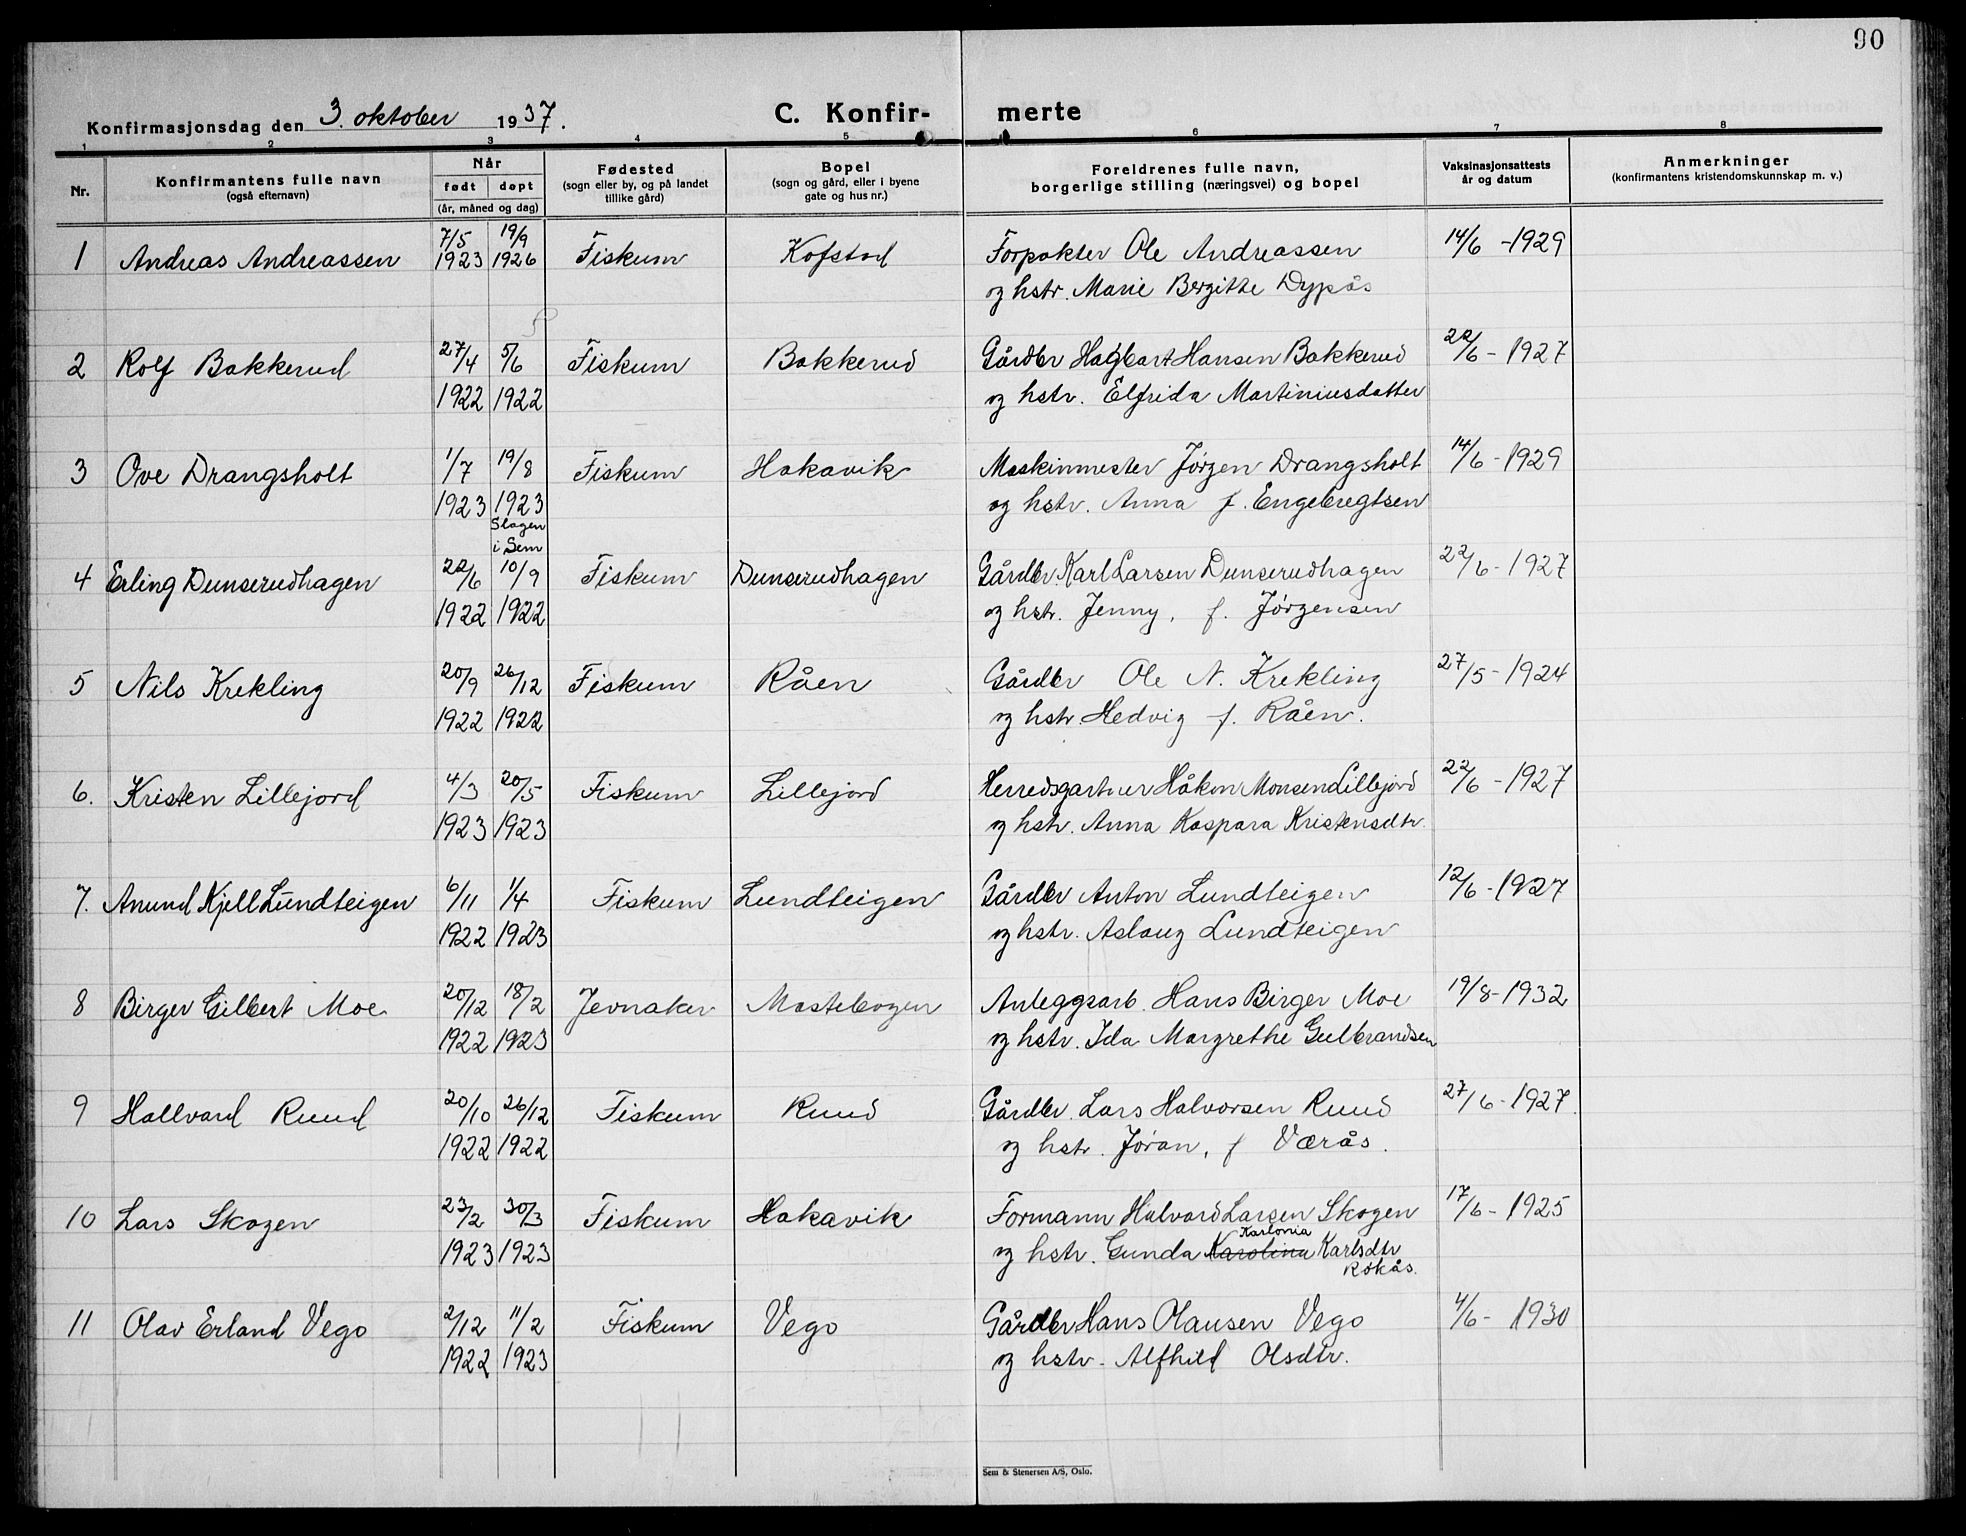 90
Konfirmasjonsdag den 3. oktober 1937.
C. Konfir- merte
1 2 3 4 5 6 7 8
Nr.
Konfirmantens fulle navn
(også efternavn)
Når
født døpt
(år, måned og dag)
Fødested
(sogn eller by, og på landet
tillike gård)
Bopel
(sogn og gård, eller i byene
gate og hus nr.)
Foreldrenes fulle navn,
borgerlige stilling (næringsvei) og bopel
Vaksinasjonsattests
år og datum
Anmerkninger
(konfirmantens kristendomskunnskap m. v.)
1 Andreas Andreassen 7/5 19/9 Fiskum Kofstad Forpakter Ole Andreassen 14/6 -1929
1923 1926 og hstr. Marie Bergitte Dypås
2 Rolf Bakkerud 27/4 5/6 Fiskum Bakkerud Gårdbr Hagbart Hansen Bakkerud 22/6 - 1927
1922 1922 og hstr. Elfrida Martiniusdatter
3 Ove Drangsholt 1/7 19/8 Fiskum Hakavik Maskinmester Jörgen Drangsholt 14/6 - 1929
1923 1923 og hstr. Anna f. Engebregtsen
Slagen
i Sem
4 Erling Dunserudhagen 22/6 10/9 Fiskum Dunserudhagen Gårdbr. Karl Larsen Dunserudhagen 22/6 - 1927
1922 1922 og hstr. Jenny, f. Jörgensen
5 Nils Krekling 20/9 26/12 Fiskum Råen Gårdbr Ole N. Krekling 27/5 - 1924
1922 1922 og hstr. Hedvig f. Råen.
6. Kristen Lillejord 4/3 20/5 Fiskum Lillejord Herredsgartner Håkon Monsen Lillejord 22/6 - 1927
1923 1923 og hstr. Anna Kaspara Kristensdtr.
7. Anund Kjell Lundteigen 6/11 1/4 Fiskum Lundteigen Gårdbr Anton Lundteigen 12/6 - 1927
1922 1923 og hstr. Aslaug Lundteigen
8 Birger Gilbert Moe 20/12 18/2 Jevnaker Mastebogen Anleggsarb. Hans Birger Moe 19/8 - 1932
1922 1923 og hstr. Ida Margrethe Gulbrandsen
9 Hallvard Ruud 20/10 26/12 Fiskum Ruud Gårdbr. Lars Halvorsen Ruud 27/6 - 1927.
1922 1922 og hstr. Jöran, f Værås.
10 Lars Skogen 23/2 30/3 Fiskum Hakavik Formann Halvard Larsen Skogen 17/6 - 1925
Karlonia
1923 1923 og hstr. Gunda Karolina Karlsdtr
Rökås.
11 Olav Erland Vego 2/12 11/2 Fiskum Vego Gårdbr Hans Olausen Vego 4/6 - 1930
1922 1923 og hstr. Alfhild Olsdtr.
Sem & Stenersen A/S, Oslo.